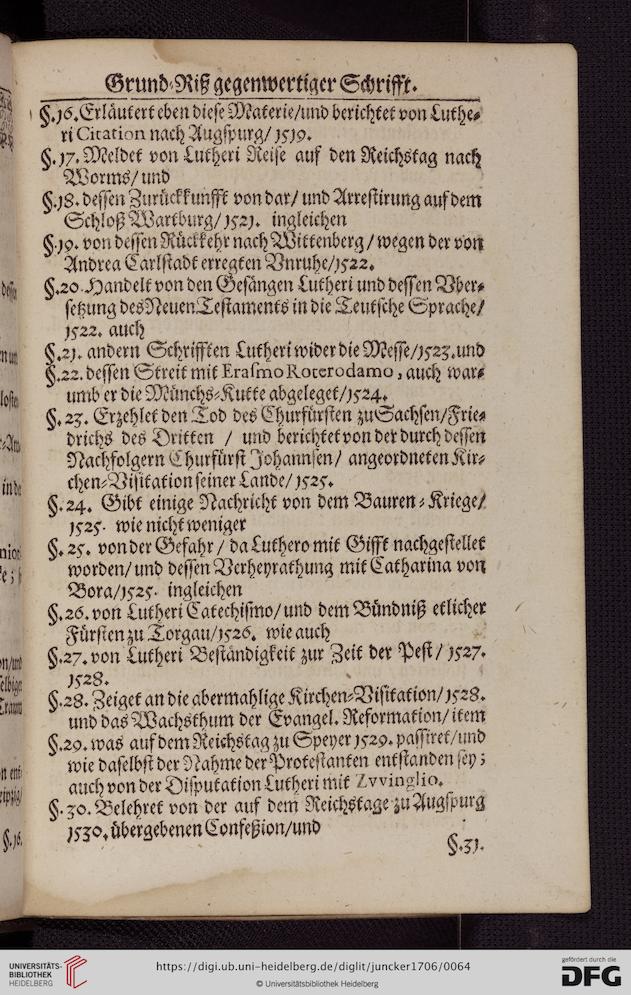 Grund-Riß gegenwertiger Schrifft.
§.16. Erläutert eben diese Materie/und berichtet von Luthe-
ri Citation nach Augspurg/ 1519.
§.17. Meldet von Lutheri Reise auf den Reichstag nach
Worms/ und
§.18. dessen Zurückkunfft von dar/ und Arrestirung auf dem
Schloß Wartburg/ 1521. ingleichen
§.19. von dessen Rückkehr nach Wittenberg/ wegen der von
Andrea Carlstadt erregten Vnruhe/1522.
§.20. Handelt von den Gesängen Lutheri und dessen Vber-
setzung des Neuen Testaments in die Teutsche Sprache/
1522. auch
§.21. andern Schrifften Lutheri wider die Messe/1523.und
§.22. dessen Streit mit Erasmo Roterodamo, auch war-
umb er die Münchs-Kutte abgeleget/1524.
§.23. Erzehlet den Tod des Churfürsten zu Sachsen/Frie-
drichs des Dritten / und berichtet von der durch dessen
Nachfolgern Churfürst Johannsen/ angeordneten Kir-
chen-Visitation seiner Lande/ 1525.
§.24. Gibt einige Nachricht von dem Bauren-Kriege/
1525. wie nicht weniger
§.25. von der Gefahr/ da Luthero mit Gifft nachgestellet
worden/ und dessen Verheyrathung mit Catharina von
Bora/1525. ingleichen
§.26. von Lutheri Catechismo/ und dem Bündniß etlicher
Fürsten zu Torgau/1526. wie auch
§.27. von Lutheri Beständigkeit zur Zeit der Pest/ 1527.
1528.
§.28. Zeiget an die abermahlige Kirchen-Visitation/1528.
und das Wachsthum der Evangel. Reformation/ item
§.29. was auf dem Reichstag zu Speyer 1529. passiret/und
wie daselbst der Nahme der Protestanten entstanden sey;
auch von der Disputation Lutheri mit Zvvinglio.
§.30. Belehret von der auf dem Reichstage zu Augspurg
1530. übergebenen Confeßion/und
§.31.
UNIVERSITÄTS-
BIBLIOTHEK
HEIDELBERG
https://digi.ub.uni-heidelberg.de/diglit/juncker1706/0064
© Universitätsbibliothek Heidelberg
gefördert durch die
DFG